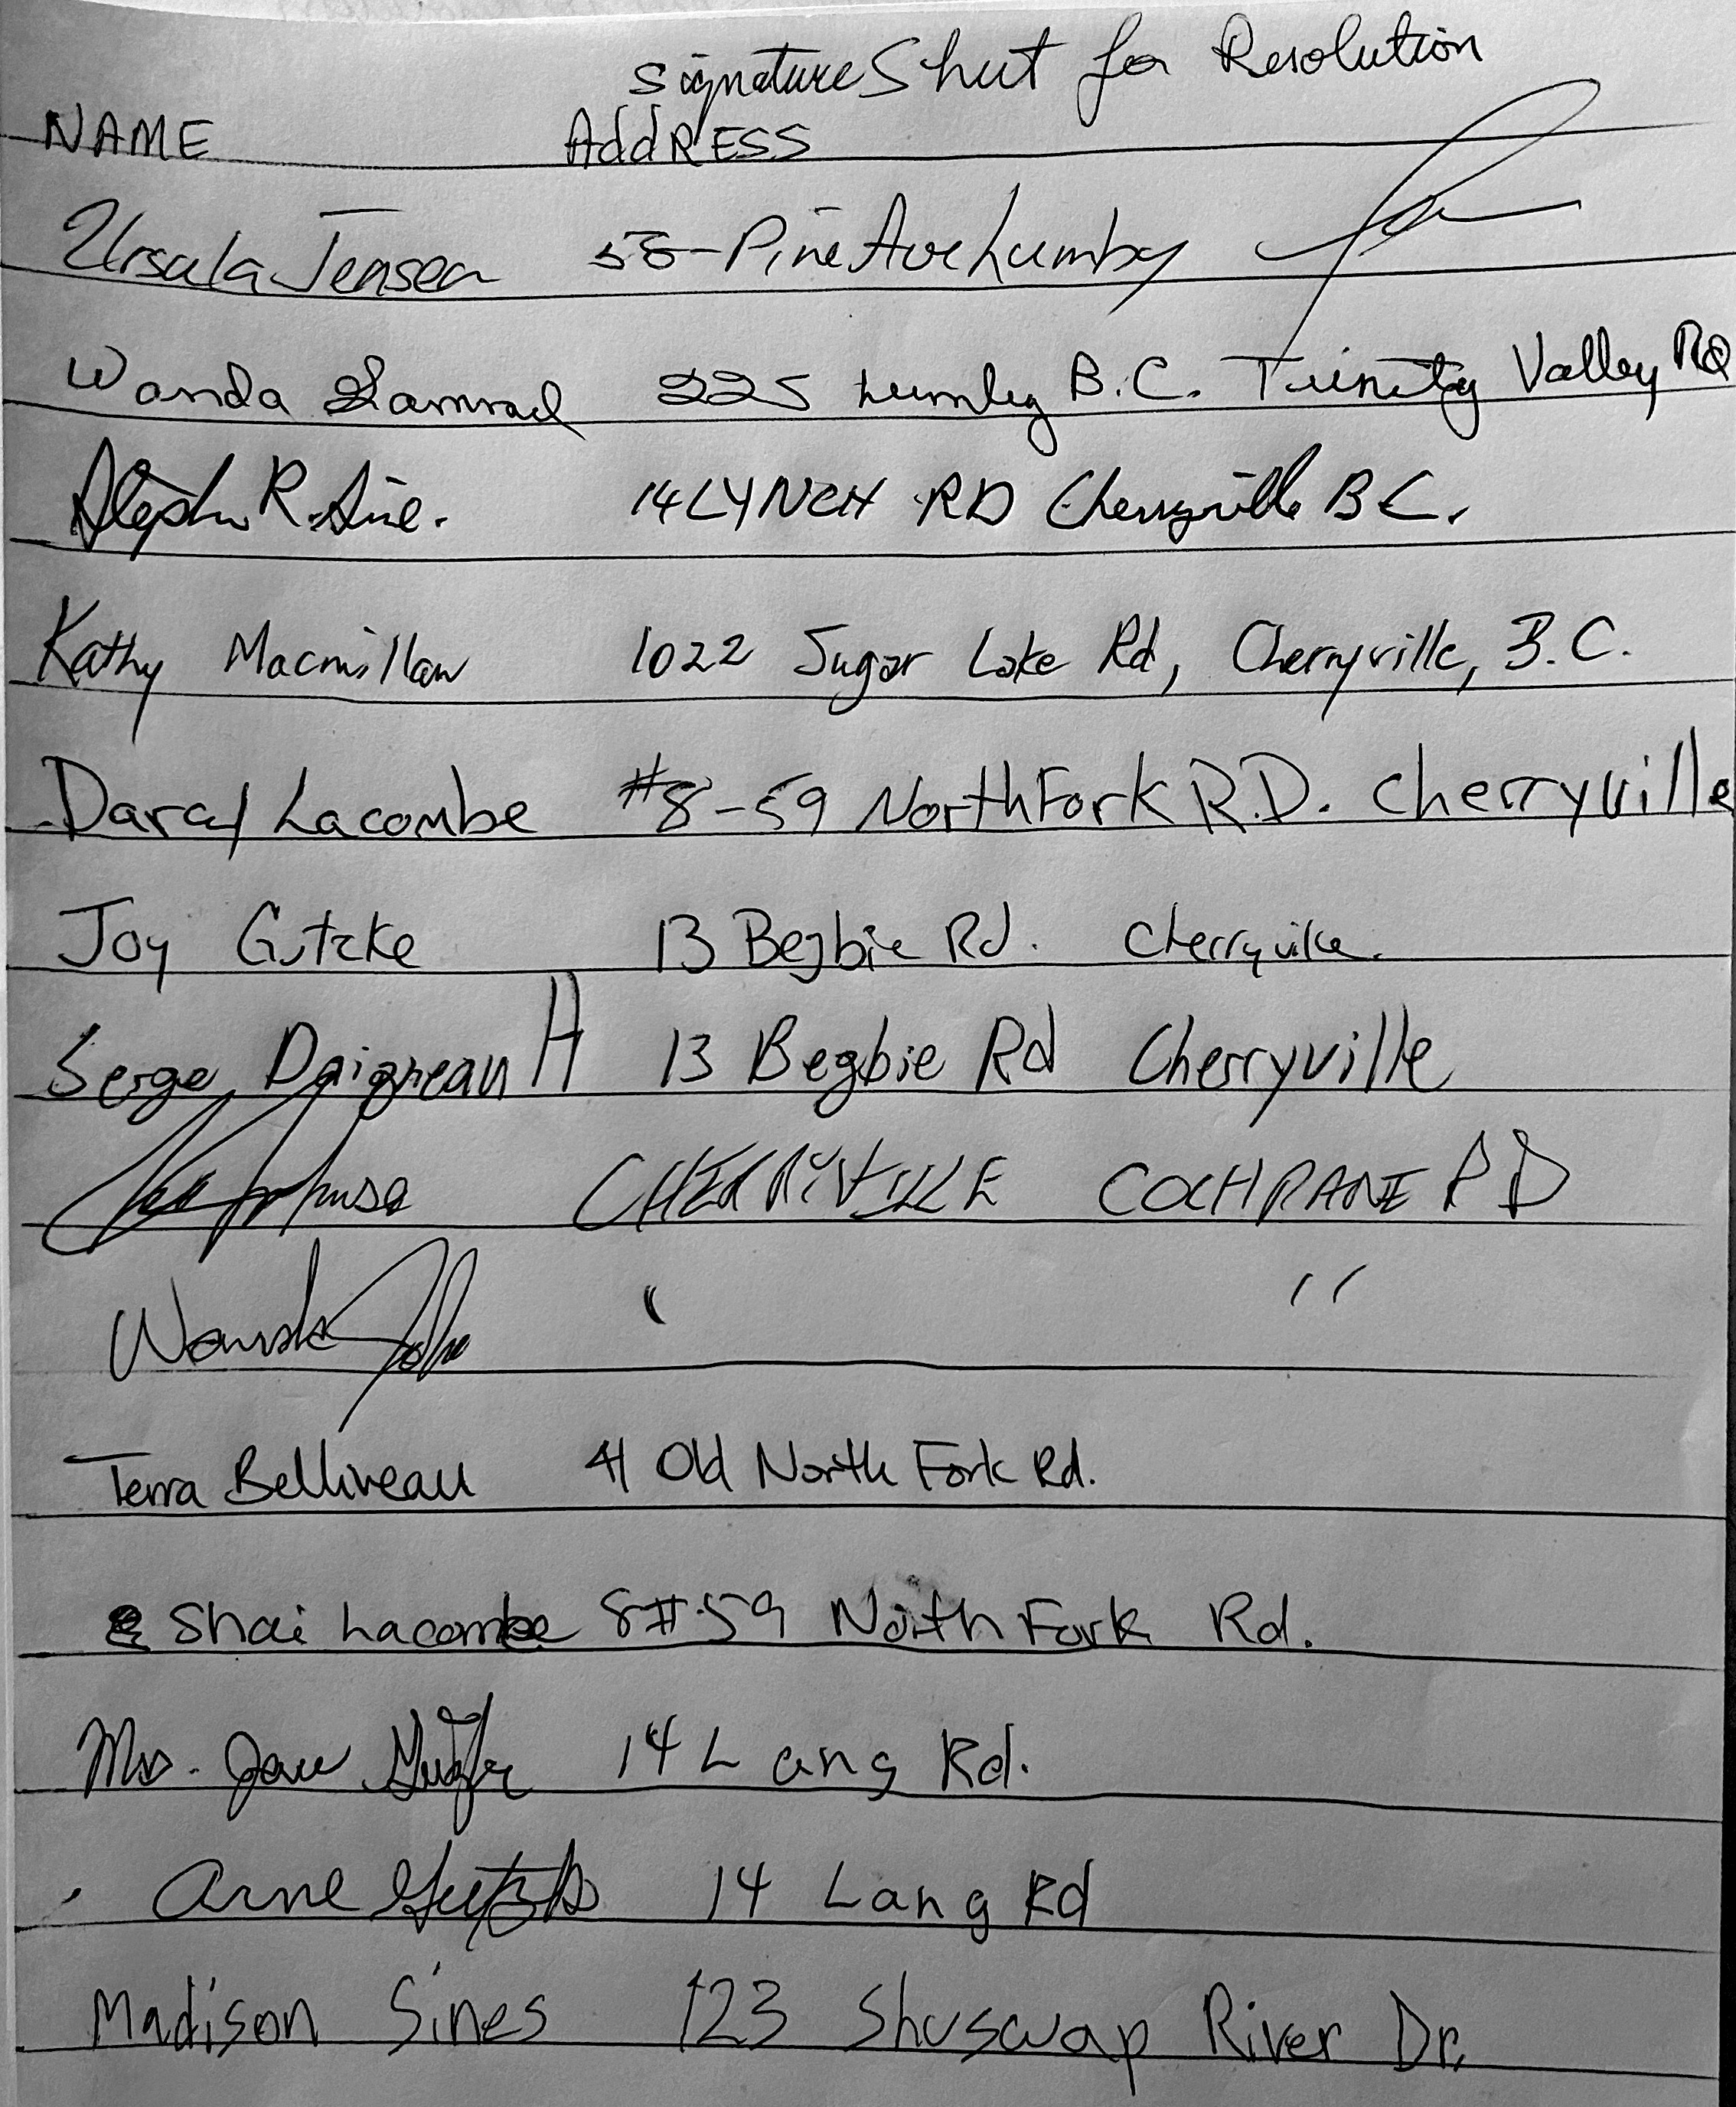 Signature Sheet for Resolution
NAME ADDRESS
Ursula Jensen 58-Pine Ave Lumby
Wanda 225 Lumby B.C. Trinity Valley Rd
R. 14 LYNCH RD Cherryville B C.
Kathy Macmillan 1022 Sugar Lake Rd, Cherryville, B.C.
Darcy Lacombe #8-59 North Fork R.D. Cherryville
Joy Gutzke 13 Begbie Rd. Cherryville.
Serge Daigneault 13 Begbie Rd Cherryville
CHERRYVILLE COCHRANE RD
" "
Terra Belliveau 41 Old North Fork Rd.
Shai Lacombe 8#59 North Fork Rd.
Mrs. 14 Lang Rd.
Arne 14 Lang Rd
Madison Sines 123 Shuswap River Dr.